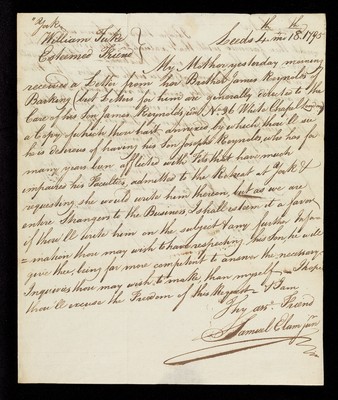 York
William Tuke
Leeds 4 mo 18th 1795
Esteemed Friend
My Mother yesterday morning
received a Letter from her Brother James Reynolds of
Barking but Letters for him are generally directed to the
Care of his Son James Reynolds jun. No 36 White Chapel
a Copy of which thou hast annexed by which thou'll see
he is desirous of having his Son Joseph Reynolds, who has for
many years been afflicted with Fits that have much
impaired his Faculties, admitted to the Retreat at York &
requesting she would write him thereon, but as we are
entire Strangers to the Business I shall esteem it a favor
if thou'll write them on the subject & any further Infor=
=mation thou may wish to have respecting his Son, he will
give thee, being far more competent to answer the necessary
Inquiries thou may wish to make, than myself. I hope
thou'll excuse the Freedom of this Request & I am
Thy assd. Friend
Samuel Elam junr